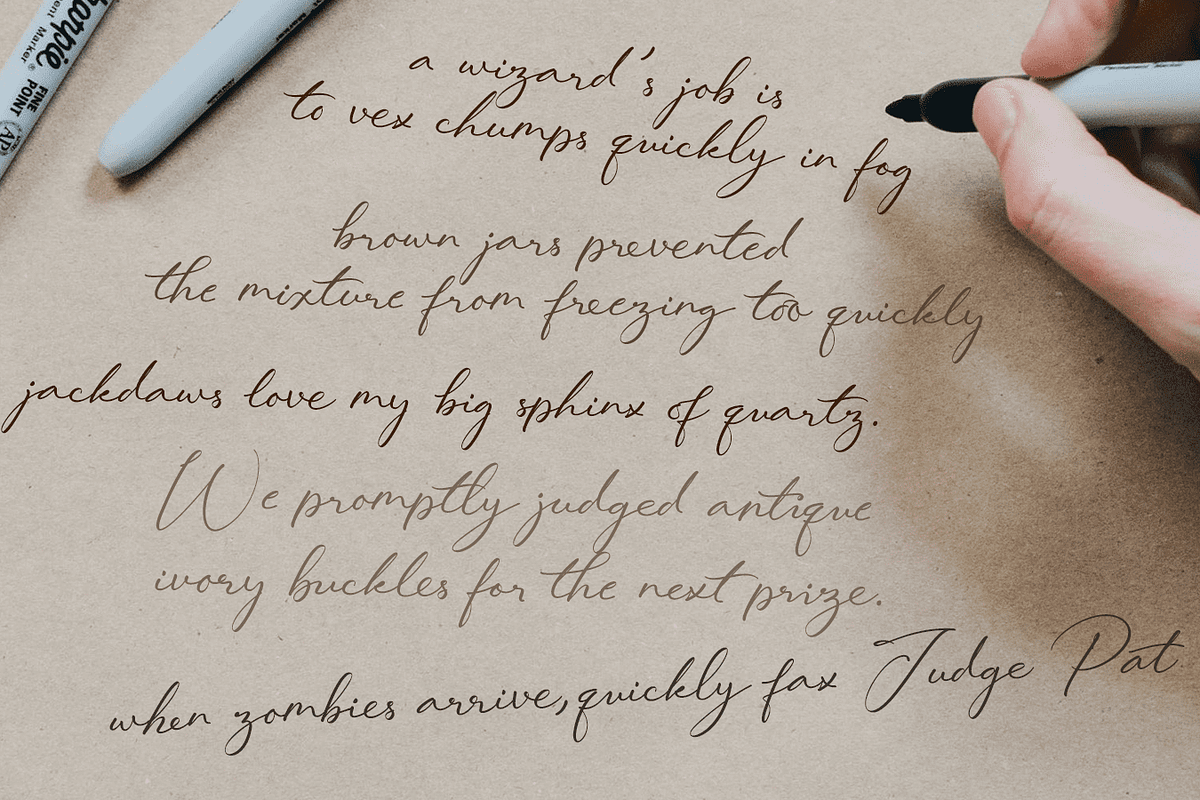 a wizard's job is
to vex chumps quickly in fog
brown jars prevented
the mixture from freezing too quickly
jackdaws love my big sphinx of quartz.
We promptly judged antique
ivory buckles for the next prize.
when zombies arrive, quickly fax Judge Pat
Sharpie
Marker
FINE
POINT
AP